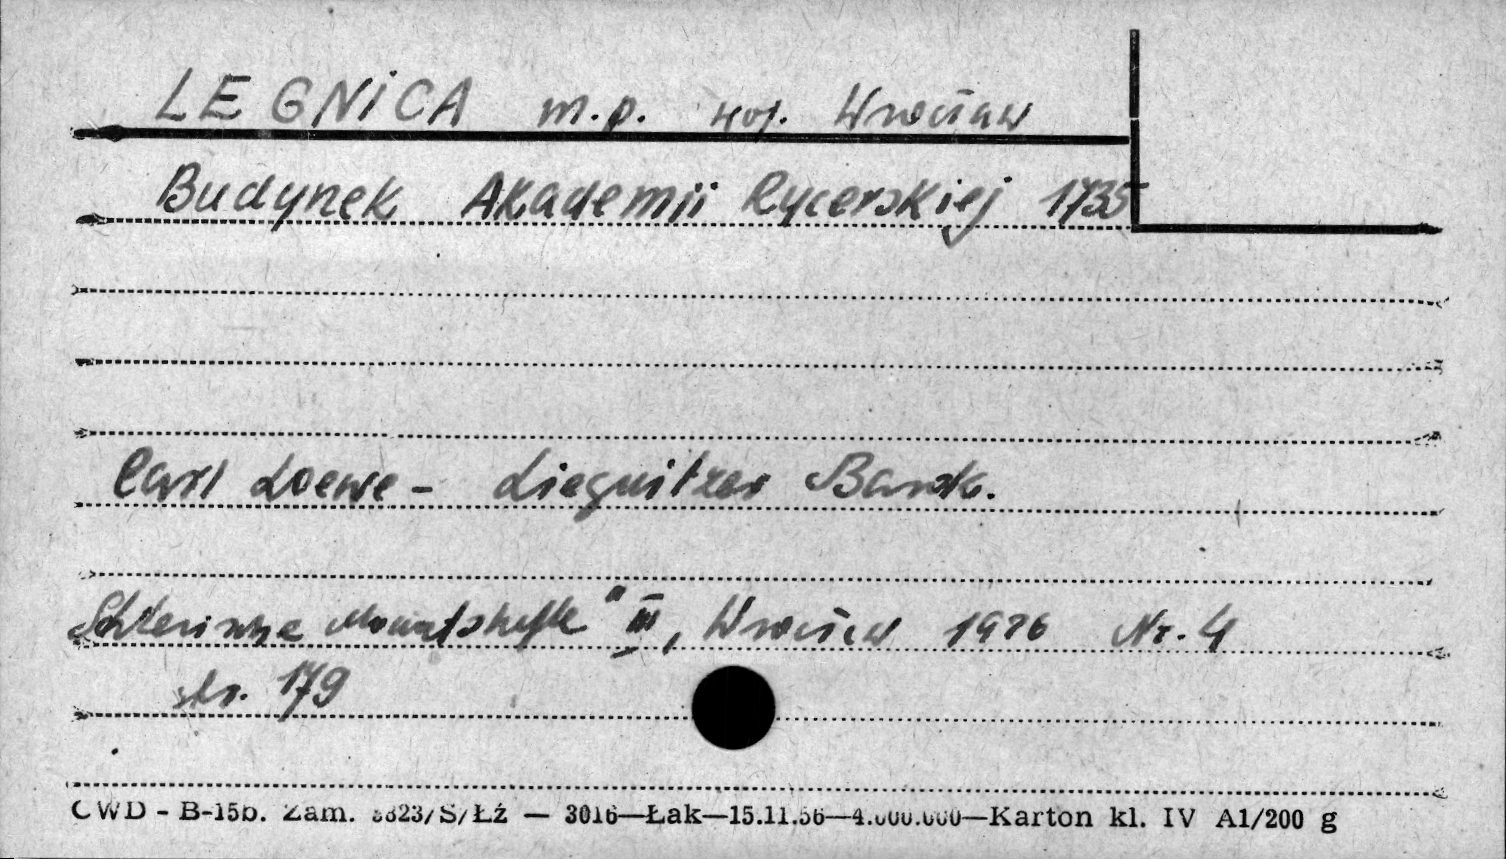 LEGNICA m.p. woj. Wrocław
Budynek Akademii Rycerskiej 1735
Carl Loewe - Liegnitzer Barok.
Schlesische Monatshefte" III, Wrocław 1926 Nr. 4
str. 179
CWD - B-15b. Zam. 8823/S/Łź — 3016—Łak—15.11.56—4.000.000—Karton kl. IV A1/200 g